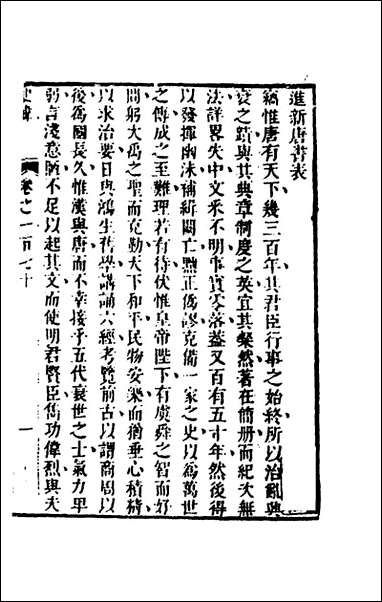 進新唐書表
竊惟唐有天下幾三百年其君臣行事之始終所以治亂興
衰之蹟與其典章制度之英宜其粲然著在簡册而紀次無
法詳畧失中文釆不明事實零落葢又百有五十年然後得
以發揮幽沬補緝闕亡黜正僞謬克備一家之史以爲萬世
之傳成之至難理若有待伏惟皇帝陛下有虞舜之智而好
問躬大禹之聖而克勤天下和平民物安樂而猶垂心積精
以求治要日與鴻生舊學講誦六經考覽前古以謂商周以
後爲國長久惟漢與唐而不幸接乎五代衰世之士氣力卑
弱言淺意陋不足以起其文而使明君賢臣雋功偉烈與夫
卷之一百七十
一